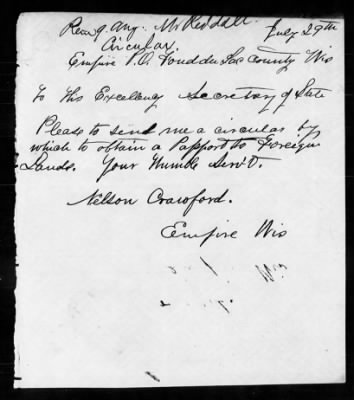 Rec'd 9. Aug. Mr Reddall.
July 29th
Circular.
Empire P.O. Fond du Lac County Wis
To His Excellency Secretary of State
Please to send me a circular by
which to obtain a Papport to Foreign
Lands. Your Humble Serv't.
Nelson Crawford.
Empire Wis